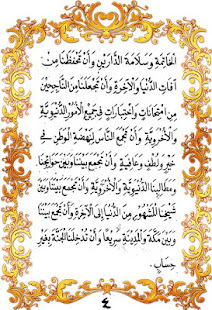 الْخَاتِمَةِ وَسَلَامَةَ الدَّارَيْنِ وَأَنْ تَحْفَظَنَا مِنْ
آفَاتِ الدُّنْيَا وَالْآخِرَةِ وَأَنْ تَجْعَلَنَا مِنَ النَّاجِحِيْنَ
مِنِ امْتِحَانَاتٍ وَاخْتِبَارَاتٍ فِي جَمِيْعِ الْأُمُوْرِ الدُّنْيَوِيَّةِ
وَالْأُخْرَوِيَّةِ وَأَنْ تَجْمَعَ النَّاسَ لِنَهْضَةِ الْوَطَنِ فِي
خَيْرٍ وَلُطْفٍ وَعَافِيَةٍ وَأَنْ تَجْمَعَ بَيْنَنَا وَبَيْنَ حَوَائِجِنَا
وَمَطَالِبِنَا الدُّنْيَوِيَّةِ وَالْأُخْرَوِيَّةِ وَأَنْ تَجْمَعَ بَيْنَنَا وَبَيْنَ
شَيْخِنَا الْمَشْهُوْرِ مِنَ الدُّنْيَا إِلَى الْآخِرَةِ وَأَنْ تَجْمَعَ بَيْنَنَا
وَبَيْنَ مَكَّةَ وَالْمَدِيْنَةِ سَرِيْعًا وَأَنْ تُدْخِلَنَا الْجَنَّةَ بِغَيْرِ
حِسَابٍ
٤